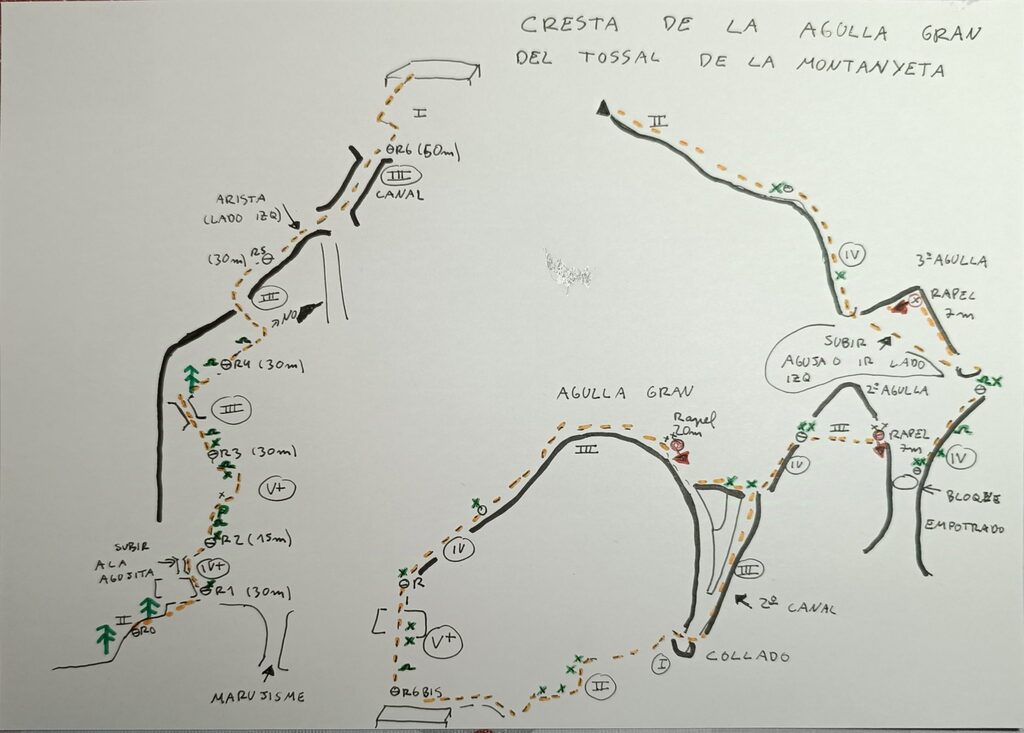 CRESTA DE LA AGULLA GRAN
DEL TOSSAL DE LA MONTANYETA
I
R6 (50m)
III
CANAL
ARISTA
(LADO IZQ)
(30m) R5
III
NO
R4 (30m)
III
R3 (30m)
V+
R2 (15m)
SUBIR
A LA
AGUJITA
IV+
R1 (30m)
II
R0
MARUJISME
II
IV
3ª AGULLA
RAPEL
7m
SUBIR
AGUJA O IR LADO
IZQ
2ª AGULLA
AGULLA GRAN
Rapel
20m
III
III
RAPEL
7m
IV
IV
BLOQUE
EMPOTRADO
IV
R
III
2ª CANAL
V+
I
COLLADO
R6BIS
II